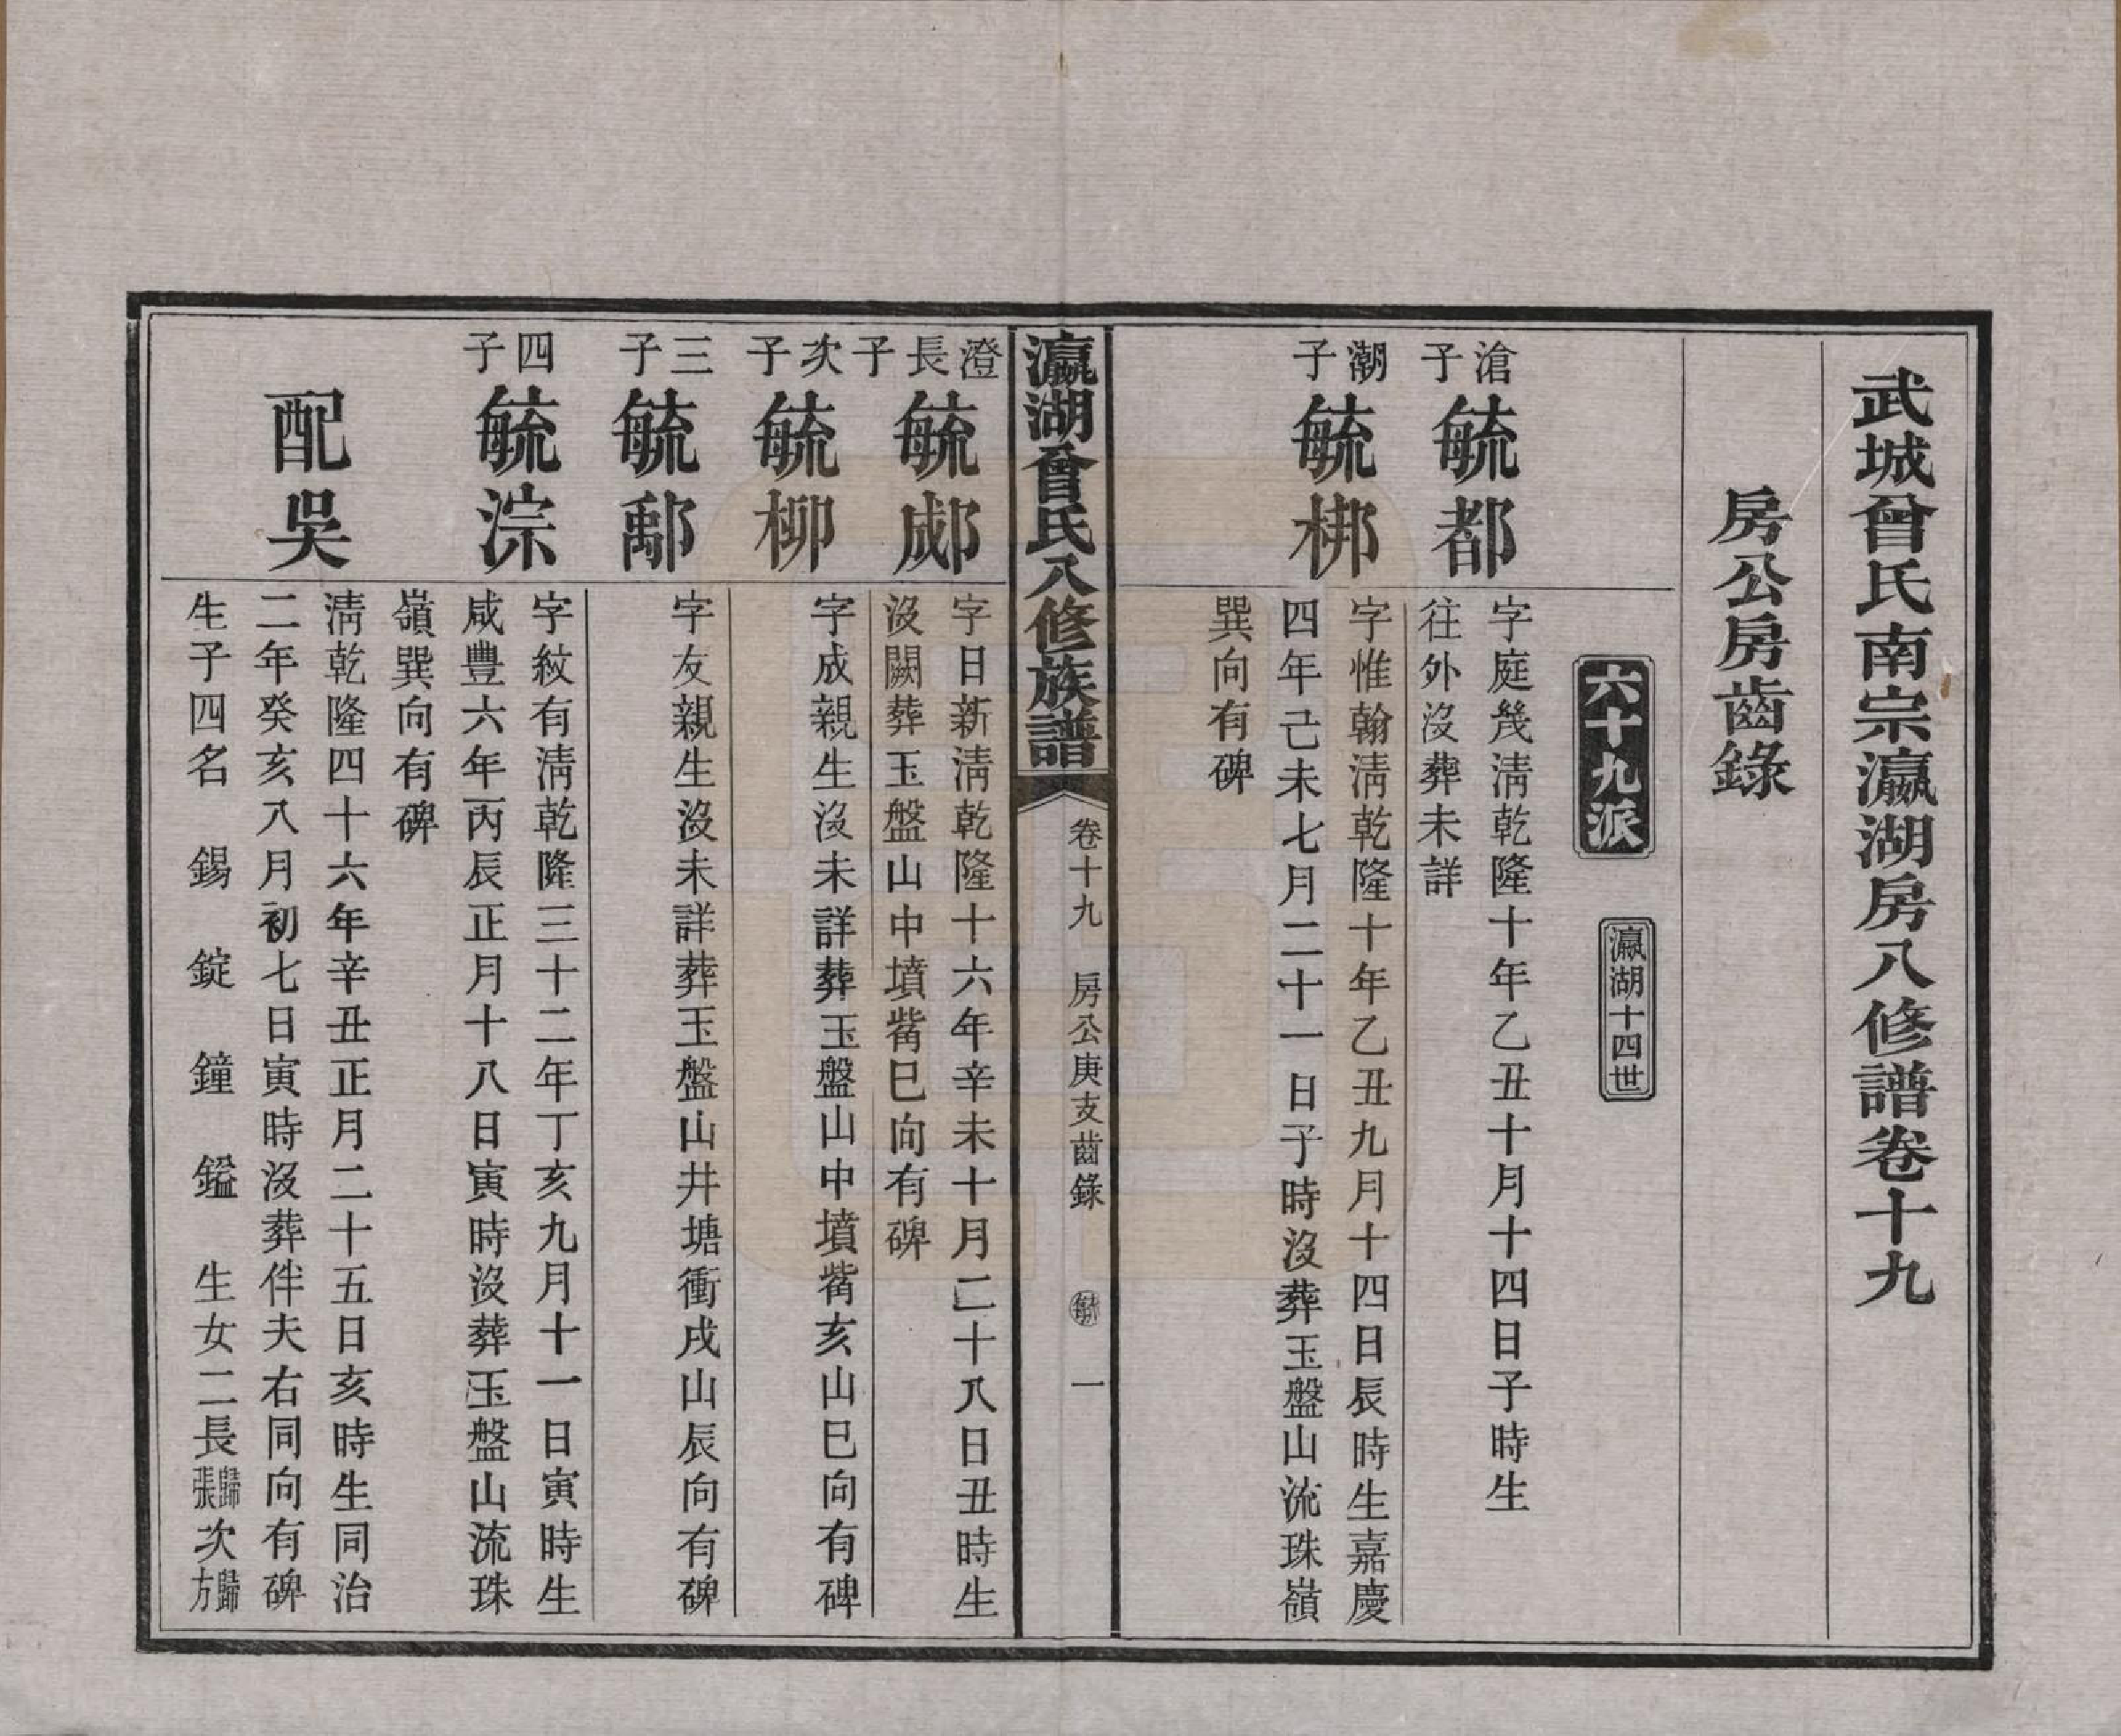 武城曾氏南宗瀛湖房八修譜卷十九
房公房齒錄
六十九派
瀛湖十四世
滄子
毓都
字庭幾淸乾隆十年乙丑十月十四日子時生
往外沒葬未詳
潮子
毓梆
字惟翰淸乾隆十年乙丑九月十四日辰時生嘉慶
四年己未七月二十一日子時沒葬玉盤山流珠嶺
巽向有碑
瀛湖曾氏八修族譜
卷十九
房公庚支齒錄
毓
一
澄長子
毓郕
字日新淸乾隆十六年辛未十月二十八日丑時生
沒闕葬玉盤山中墳觜巳向有碑
次子
毓柳
字成親生沒未詳葬玉盤山中墳觜亥山巳向有碑
三子
毓鄅
字友親生沒未詳葬玉盤山井塘衝戌山辰向有碑
四子
毓淙
字紋有淸乾隆三十二年丁亥九月十一日寅時生
咸豐六年丙辰正月十八日寅時沒葬玉盤山流珠
嶺巽向有碑
配吳
淸乾隆四十六年辛丑正月二十五日亥時生同治
二年癸亥八月初七日寅時沒葬伴夫右同向有碑
生子四名 錫 錠 鐘 鎰 生女二長歸張次歸方